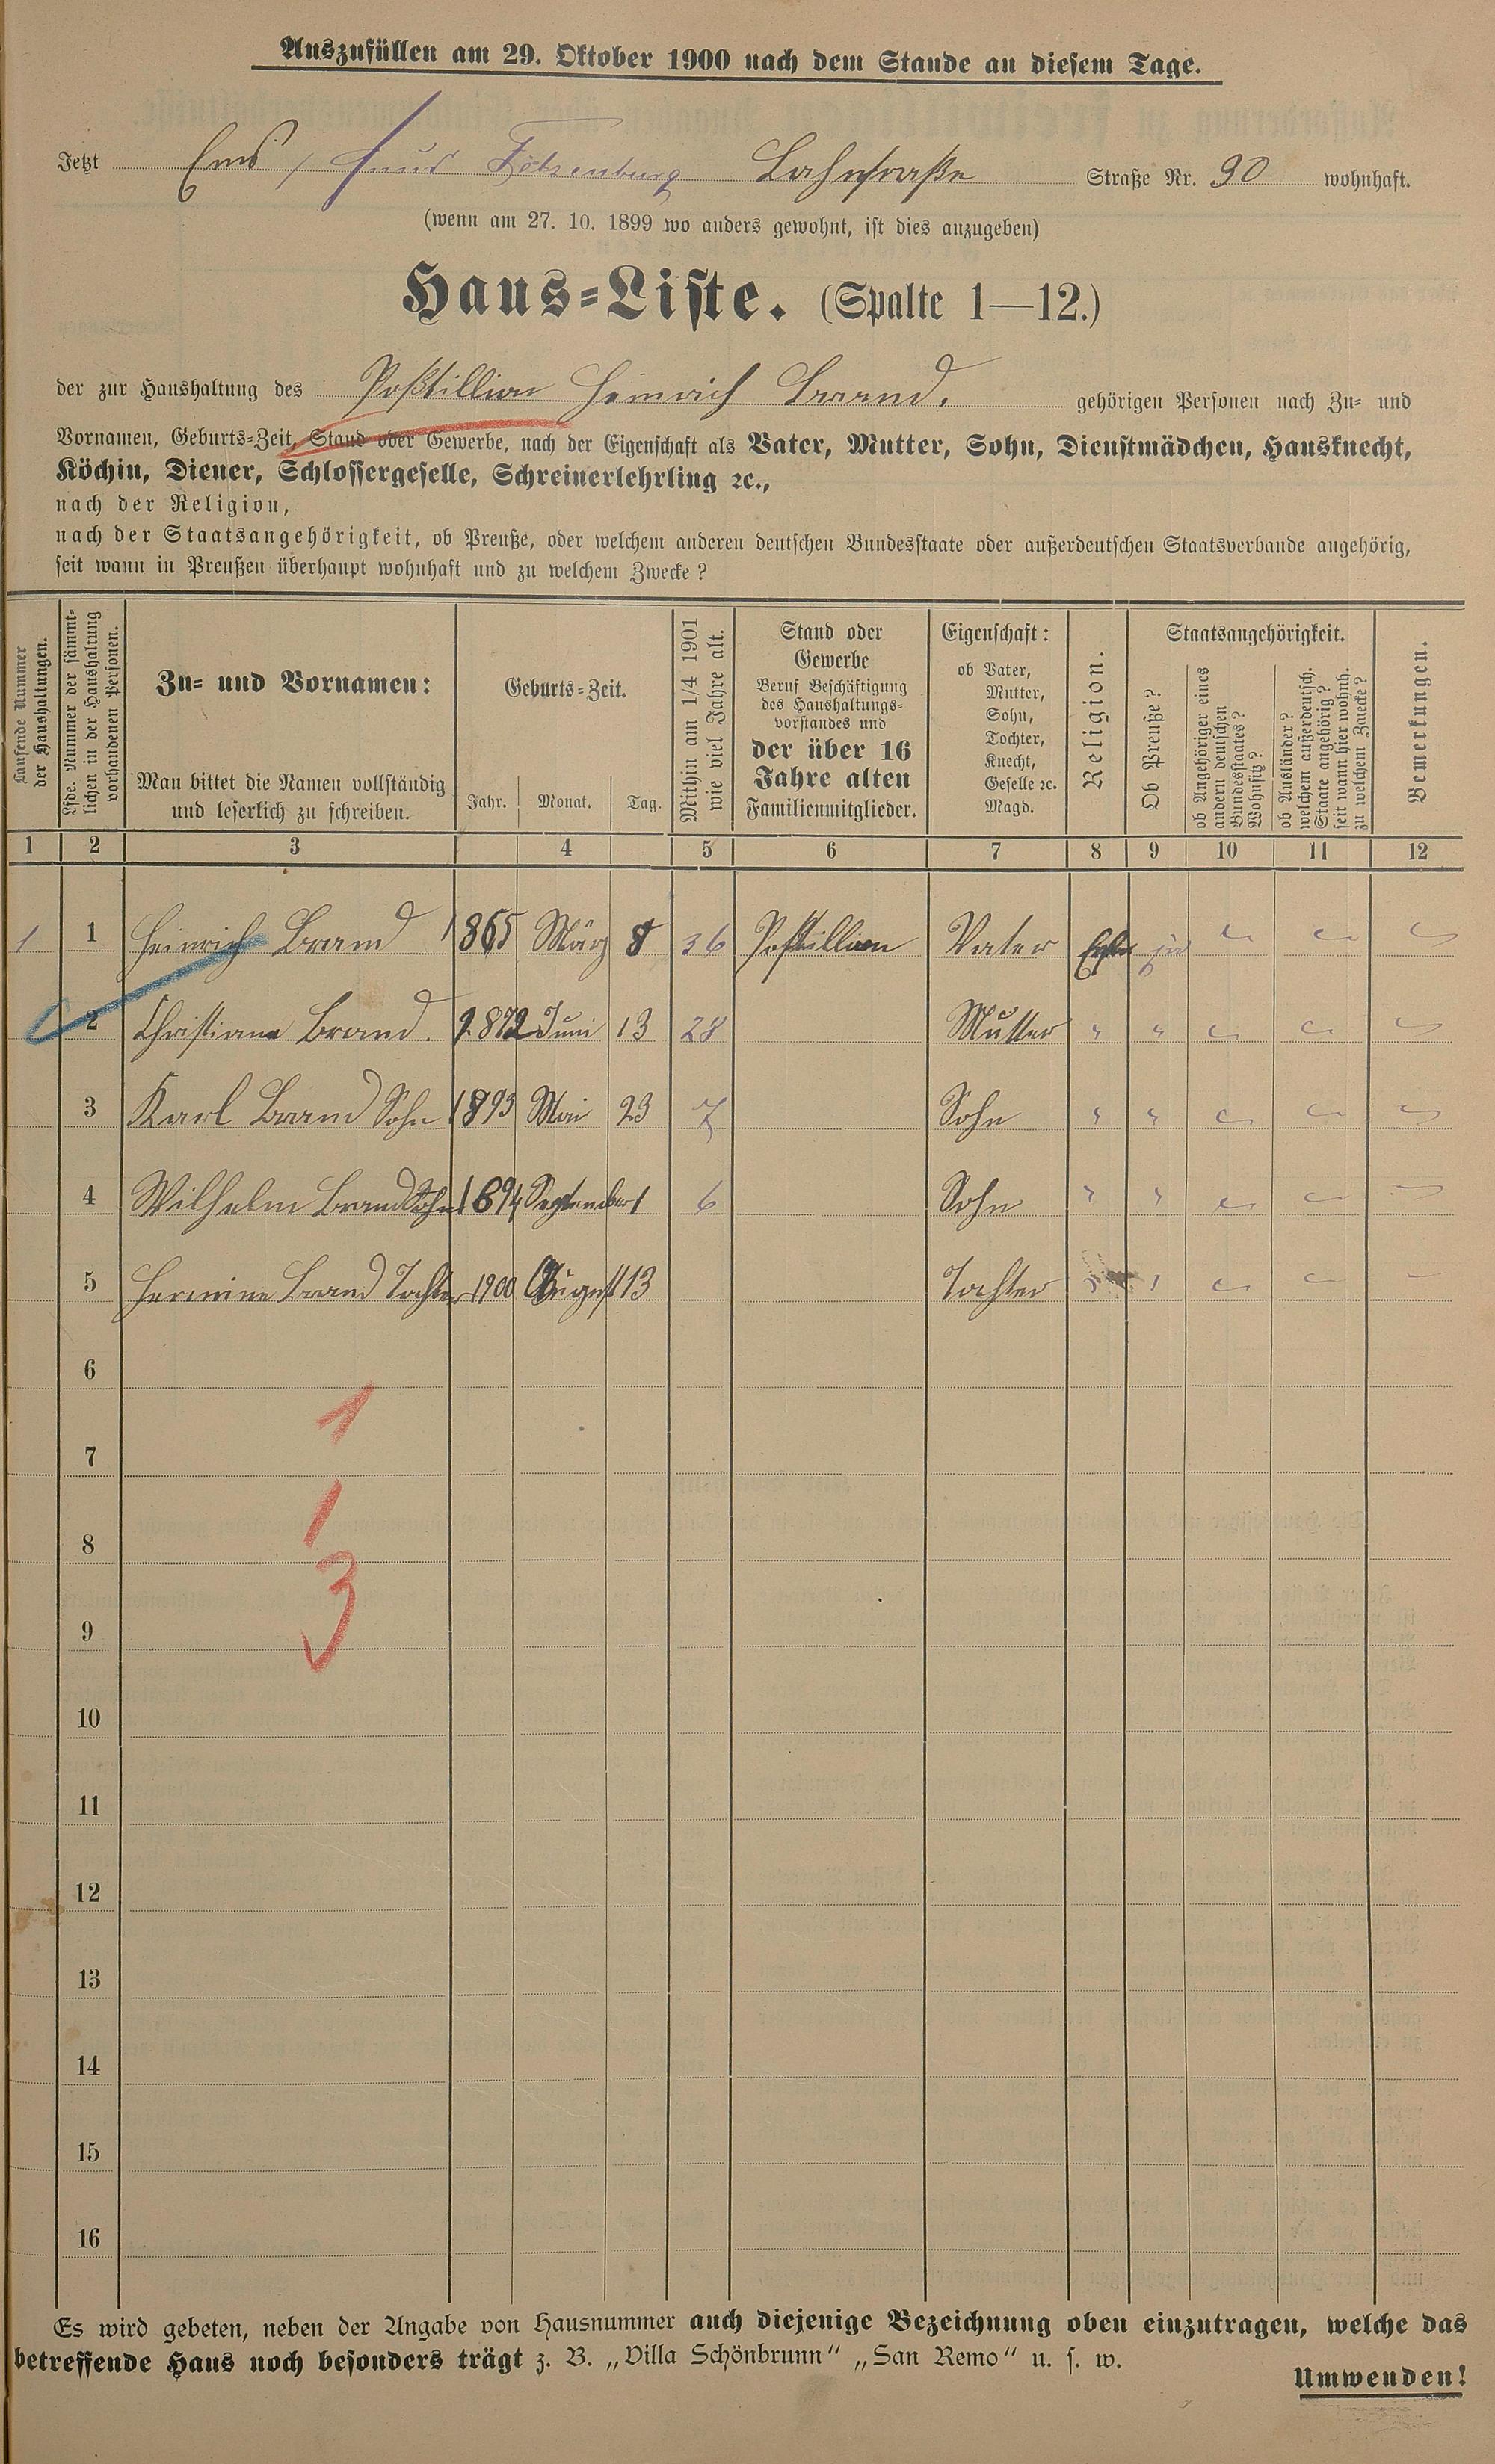 Auszufüllen am 29. Oktober 1900 nach dem Stande an diesem Tage.
Jetzt Ems / Haus Felsenburg Lahnstraße Straße Nr. 90 wohnhaft.
(wenn am 27. 10. 1899 wo anders gewohnt, ist dies anzugeben)
Haus-Liste. (Spalte 1—12.)
der zur Haushaltung des Postillion Heinrich Brand. gehörigen Personen nach Zu- und
Vornamen, Geburts-Zeit, Stand oder Gewerbe, nach der Eigenschaft als Vater, Mutter, Sohn, Dienstmädchen, Hausknecht,
Köchin, Diener, Schlossergeselle, Schreinerlehrling ꝛc.,
nach der Religion,
nach der Staatsangehörigkeit, ob Preuße, oder welchem anderen deutschen Bundesstaate oder außerdeutschen Staatsverbande angehörig,
seit wann in Preußen überhaupt wohnhaft und zu welchem Zwecke?
Laufende Nummer
der Haushaltungen.
Lfde. Nummer der sämmt-
lichen in der Haushaltung
vorhandenen Personen.
Zu- und Vornamen:
Man bittet die Namen vollständig
und leserlich zu schreiben.
Geburts-Zeit.
Jahr. Monat. Tag.
Mithin am 1/4 1901
wie viel Jahre alt.
Stand oder
Gewerbe
Beruf Beschäftigung
des Haushaltungs-
vorstandes und
der über 16
Jahre alten
Familienmitglieder.
Eigenschaft:
ob Vater,
Mutter,
Sohn,
Tochter,
Knecht,
Geselle ꝛc.
Magd.
Religion.
Staatsangehörigkeit.
Ob Preuße?
ob Angehöriger eines
andern deutschen
Bundesstaates?
Wohnsitz?
ob Ausländer?
welchem außerdeutsch.
Staate angehörig?
seit wann hier wohnh.
zu welchem Zwecke?
Bemerkungen.
1 2 3 4 5 6 7 8 9 10 11 12
1 1 Heinrich Brand 1865 März 8 36 Postillion Vater ja
2 Christiane Brand. 1872 Juni 13 28 Mutter " "
3 Karl Brand Sohn 1893 Mai 23 7 Sohn " "
4 Wilhelm Brand Sohn 1894 September 1 6 Sohn " "
5 Hermine Brand Tochter 1900 August 13 Tochter
6
1
7
1
8
3
9
10
11
12
13
14
15
16
Es wird gebeten, neben der Angabe von Hausnummer auch diejenige Bezeichnung oben einzutragen, welche das
betreffende Haus noch besonders trägt z. B. „Villa Schönbrunn“ „San Remo“ u. s. w.
Umwenden!